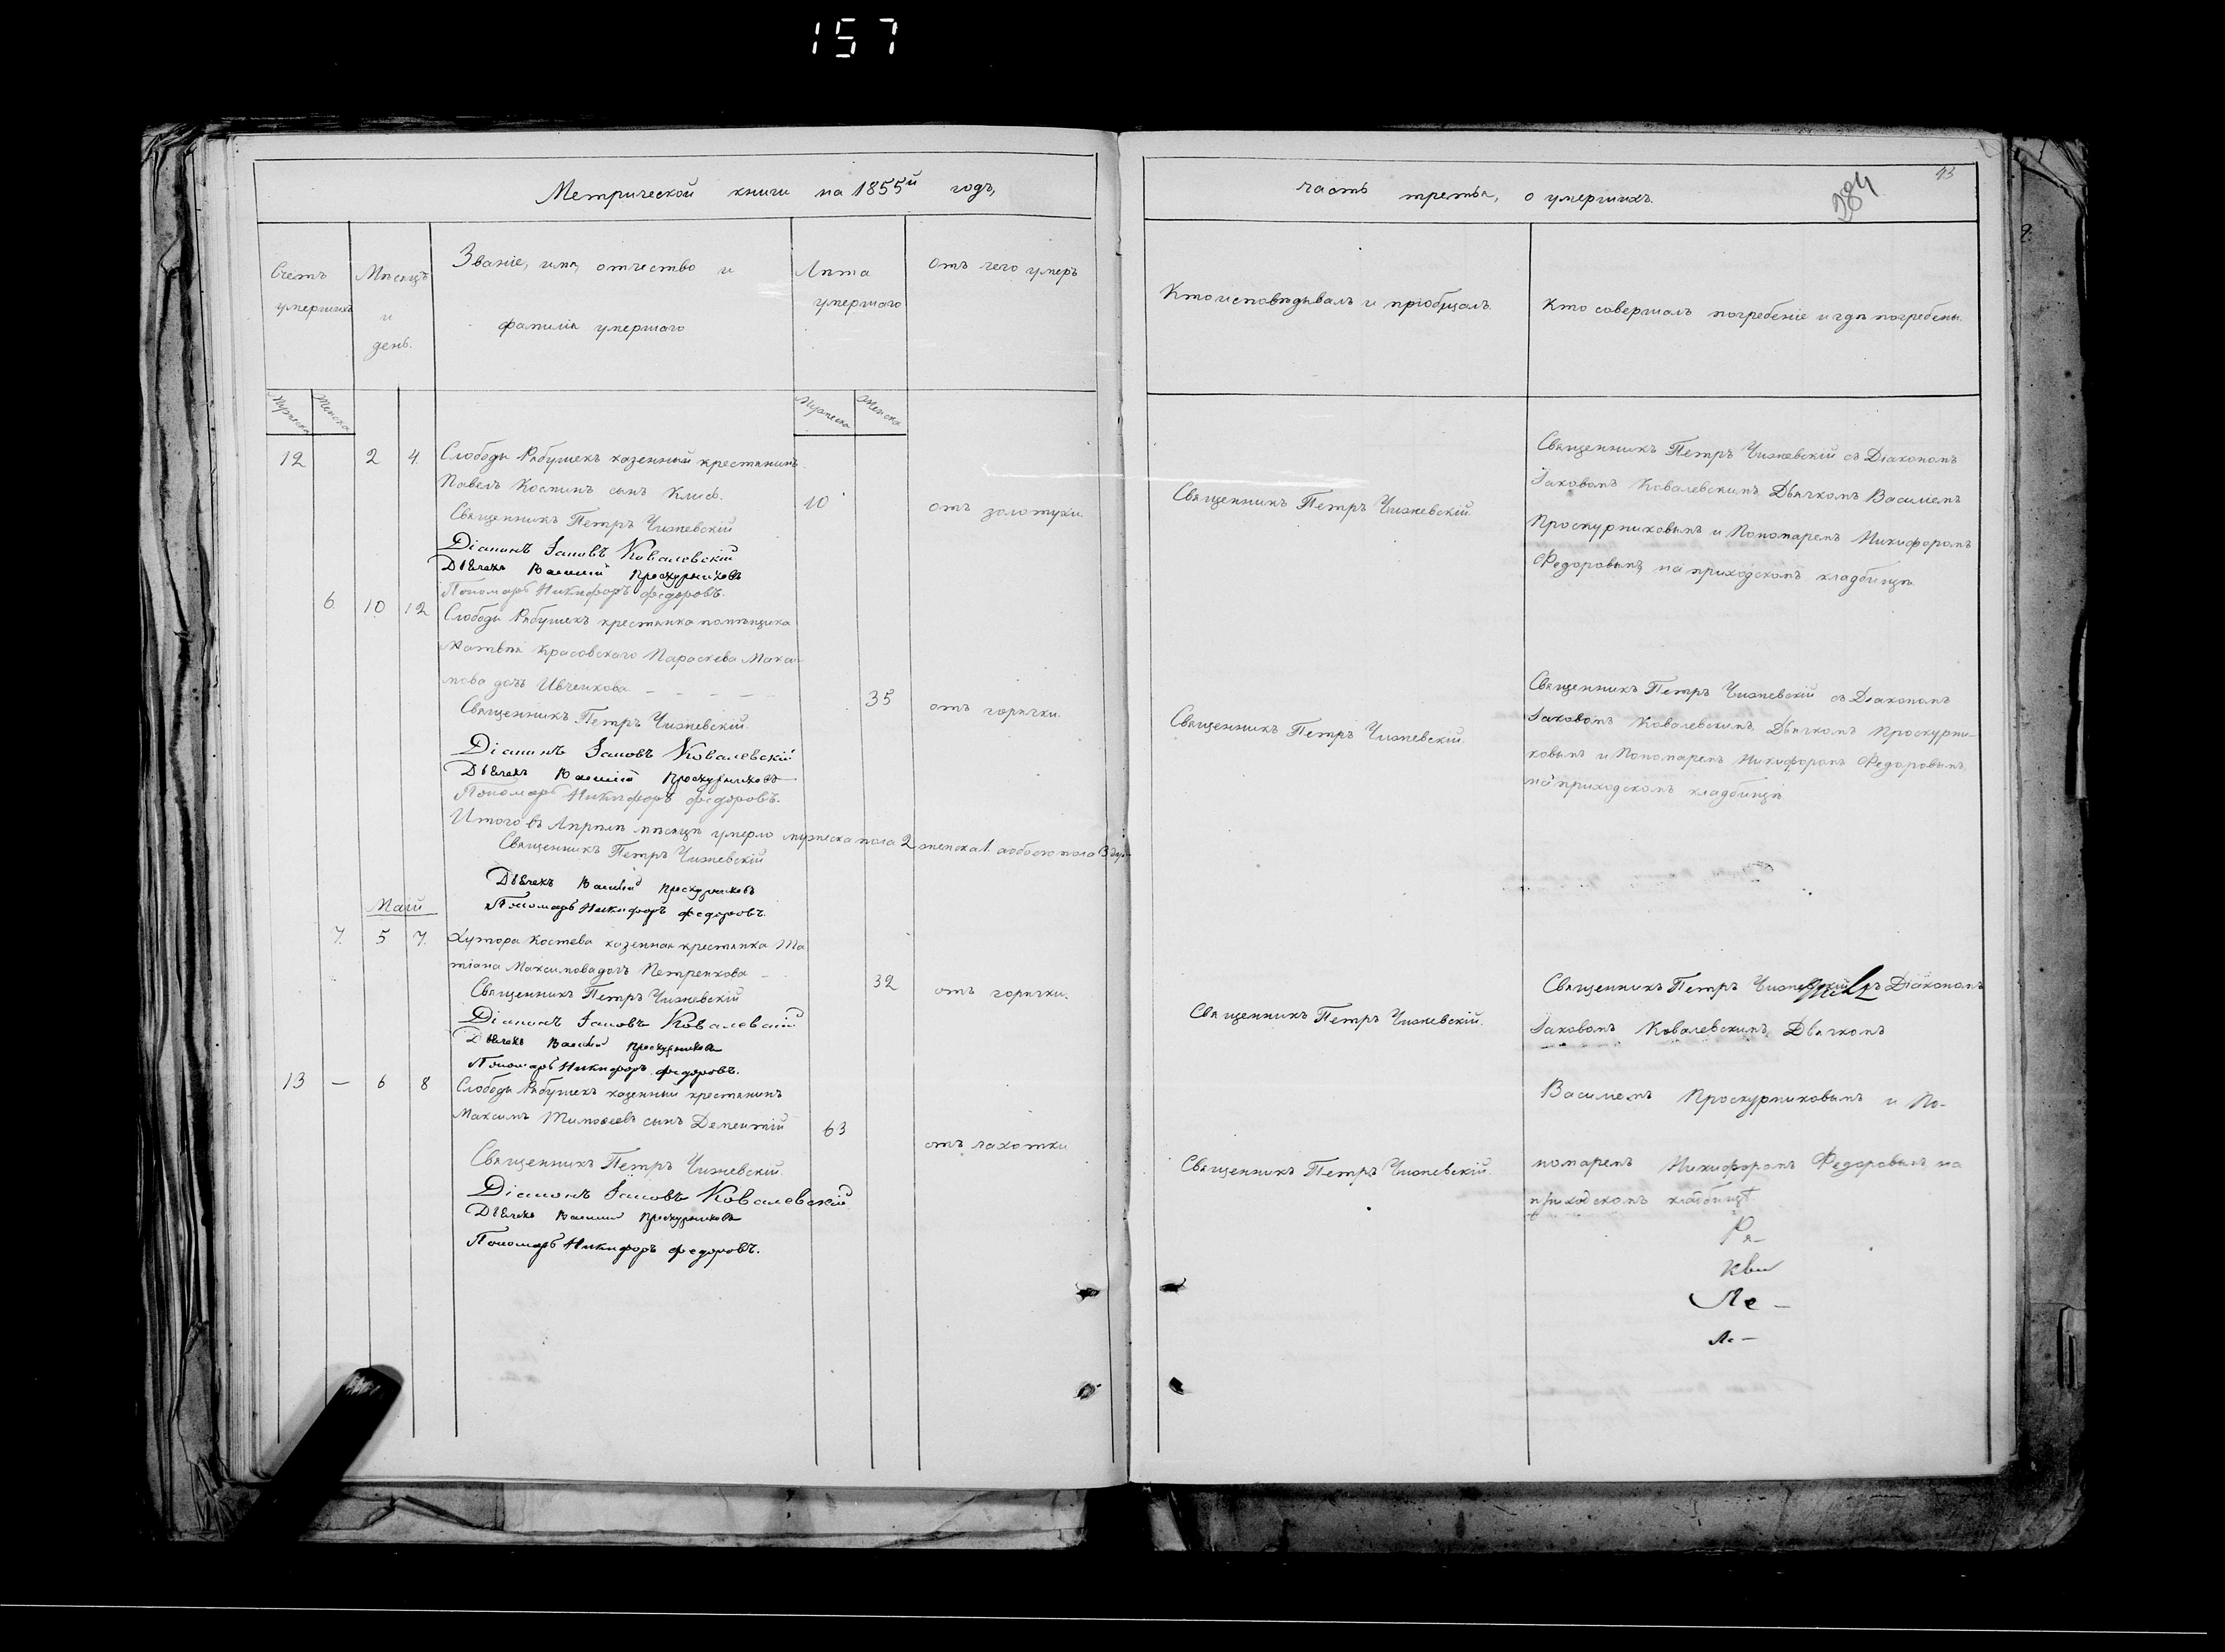 157
Метрической книги на 1855й годъ,
Счетъ умершихъ
Мѣсяцъ и день.
Званіе, имя, отчество и фамилія умершаго
Лѣта умершаго
Отъ чего умеръ
Мужеска
Женска
Мужеска
Женска
12 2 4. Слободы Рябушекъ казенный крестьянинъ
Павелъ Косминъ сынъ 10 отъ золотухи.
Священникъ Петръ Чижевскій
Діаконъ Іаковъ Ковалевскій
Дьячекъ Василій Проскурниковъ
Пономарь Никифоръ Федоровъ.
6. 10 12 Слободы Рябушекъ крестьянка помѣщика
Матвѣя Красовскаго Параскева Макси-
мова дочь Ивченкова 35 отъ горячки.
Священникъ Петръ Чижевскій
Діаконъ Іаковъ Ковалевскій
Дьячекъ Василій Проскурниковъ
Пономарь Никифоръ Федоровъ.
Итого въ Апрѣлѣ мѣсяцѣ умерло мужеска пола 2 женска 1. а обоего пола 3 душ
Священникъ Петръ Чижевскій
Дьячекъ Василій Проскурниковъ
Пономарь Никифоръ Федоровъ.
Маій
7. 5 7. Хутора Костева казенная крестьянка Та
тіана Максимова дочь Петренкова 32 отъ горячки.
Священникъ Петръ Чижевскій
Діаконъ Іаковъ Ковалевскій
Дьячекъ Василій Проскурниковъ
Пономарь Никифоръ Федоровъ.
13 — 6 8 Слободы Рябушекъ казенный крестьянинъ
Максимъ Тимофеевъ сынъ Дементій 63 отъ чахотки
Священникъ Петръ Чижевскій.
Діаконъ Іаковъ Ковалевскій
Дьячекъ Василій Проскурниковъ
Пономарь Никифоръ Федоровъ.
часть третья, о умершихъ.
284
Кто исповѣдывалъ и пріобщалъ.
Кто совершалъ погребеніе и гдѣ погребены.
Священникъ Петръ Чижевскій.
Священникъ Петръ Чижевскій съ Діакономъ
Іаковомъ Ковалевскимъ, Дьячкомъ Василіемъ
Проскурниковымъ и Пономаремъ Никифоромъ
Федоровымъ, на приходскомъ кладбищѣ.
Священникъ Петръ Чижевскій.
Священникъ Петръ Чижевскій съ Діакономъ
Іаковомъ Ковалевскимъ, Дьячкомъ Проскурни-
ковымъ и Пономаремъ Никифоромъ Федоровымъ,
на приходскомъ кладбищѣ
Священникъ Петръ Чижевскій.
Священникъ Петръ Чижевскій съ Діакономъ
Іаковомъ Ковалевскимъ, Дьячкомъ
Василіемъ Проскурниковымъ и По-
Священникъ Петръ Чижевскій.
номаремъ Никифоромъ Федоровымъ, на
приходскомъ кладбищѣ.
Ря-
Ле -